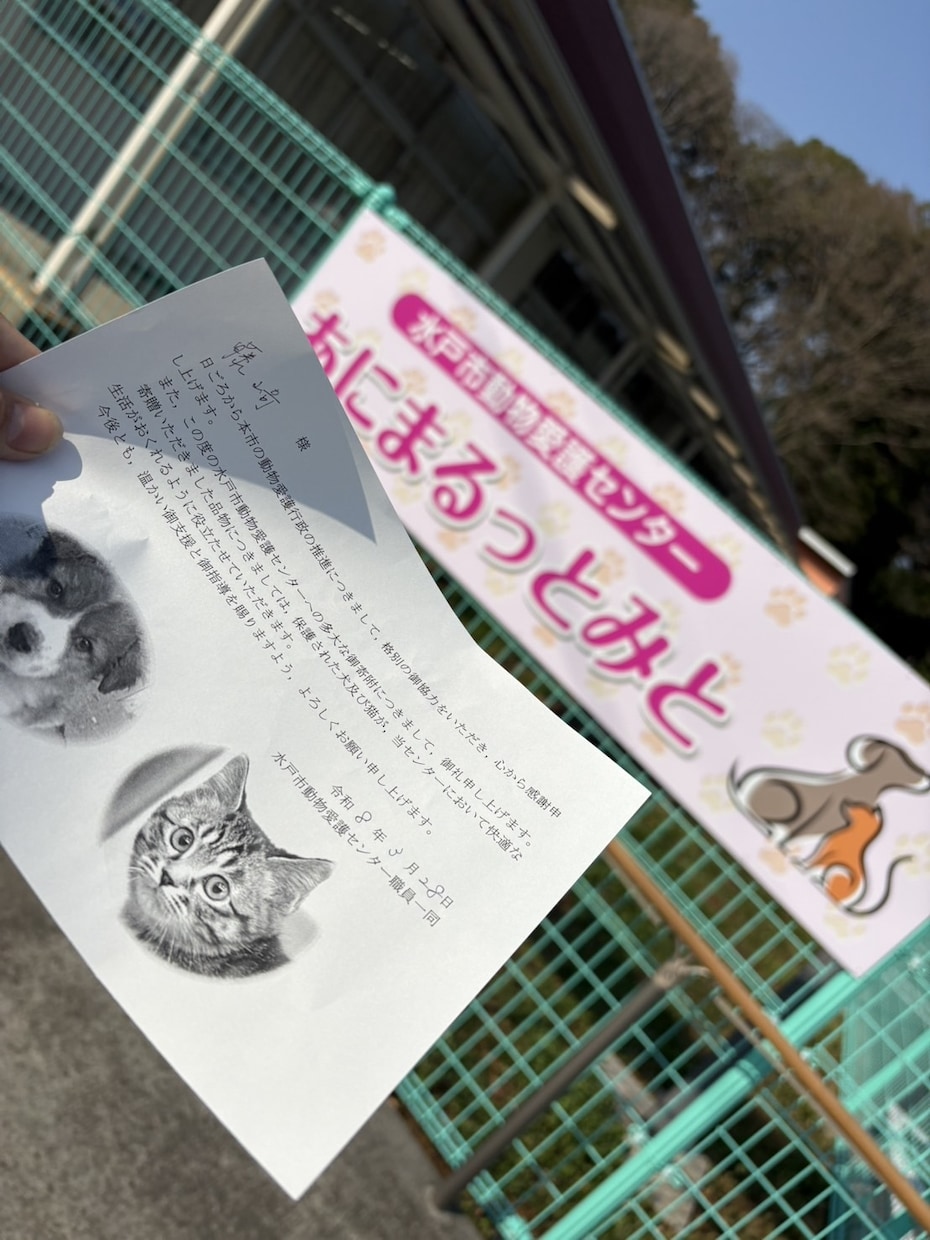 様
日ごろから本市の動物愛護行政の推進につきまして，格別の御協力をいただき，心から感謝申
し上げます。
また，この度の水戸市動物愛護センターへの多大な御寄附につきまして，御礼申し上げます。
寄贈いただきました品物につきましては，保護された犬及び猫が，当センターにおいて快適な
生活がおくれるように役立たせていただきます。
今後とも，温かい御支援と御指導を賜りますよう，よろしくお願い申し上げます。
令和8年3月28日
水戸市動物愛護センター職員一同
水戸市動物愛護センター
あにまるっとみと